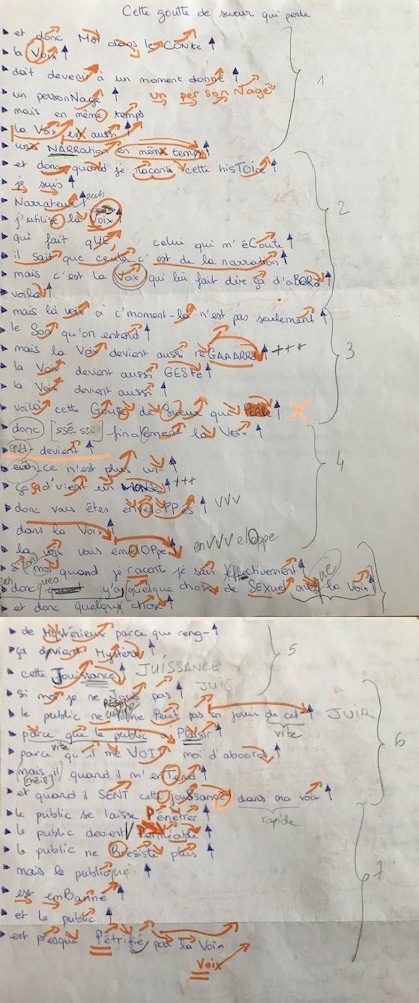 Cette goutte de sueur qui perle
et donc Moi dans le CONte
la Voix
doit devenir à un moment donné
1
un personNage un per son Nage
mais en même temps
la Voix est aussi
une NARRation en même temps
et donc quand je raconte cette hisTOIre
je suis
Narrateur euh
j'utilise la Voix
2
qui fait que celui qui m'éCoute
il sait que ceula c'est de la narration
mais c'est la Voix qui lui fait dire ça d'aBORd
voilà
mais la voix à c'moment-là n'est pas seulement
le Son qu'on entend
3
mais la Voix devient aussi reGAAARD +++
la Voix devient aussi GESTe
la Voix devient aussi
voilà cette Goutte de Sueur qui PERLE X
donc finalement la Voix
devient
4
euh ce n'est plus un
ça d'vient un MONDE +++
donc vous êtes enveloPPés VVV
dans la Voix
la voix vous envelOPPe enVVVelOppe
si moi quand je raconte je sais effectivement
donc y a quelque chose de SExuel avec la Voix
et donc quelque chose
de Mystérieux parce que
ça devient Mystère
5
cette Jouissance JUISSANCE
si moi je ne Jouis pas JUIS
le public ne Peut pas en jouir de cet JUIR
parce que le public a Plaisir vite
6
parce qu'il me VOIT moi d'abord
mais quand il m'enTend
et quand il SENT cette jouissance dans ma voix
rapide
le public se laisse Pénétrer
le public devient Perméable
le public ne Résiste plus
7
mais le public
est emBanné
et le public
est presque Pétrifié par la Voix
Voix